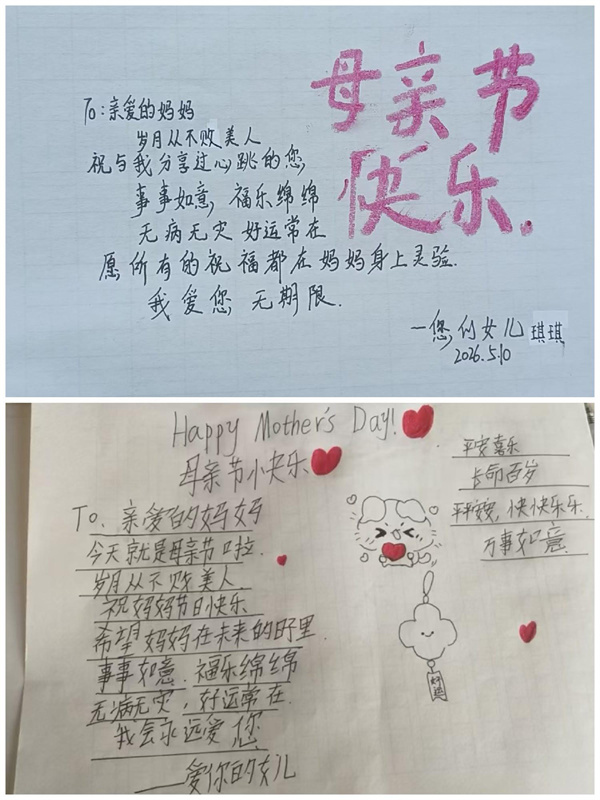 母亲节
快乐.
To:亲爱的妈妈
岁月从不败美人
祝与我分享过心跳的您,
事事如意,福乐绵绵
无病无灾 好运常在
愿所有的祝福都在妈妈身上灵验.
我爱您 无期限.
—您的女儿 琪琪
2026.5.10
Happy Mother's Day!
母亲节快乐
To. 亲爱的妈妈
今天就是母亲节啦.
岁月从不败美人
祝妈妈节日快乐
希望妈妈在未来的日子里
事事如意.福乐绵绵
无病无灾,好运常在.
我会永远爱您
——爱你的女儿
平安喜乐
长命百岁
平平安安,快快乐乐.
万事如意.
好运